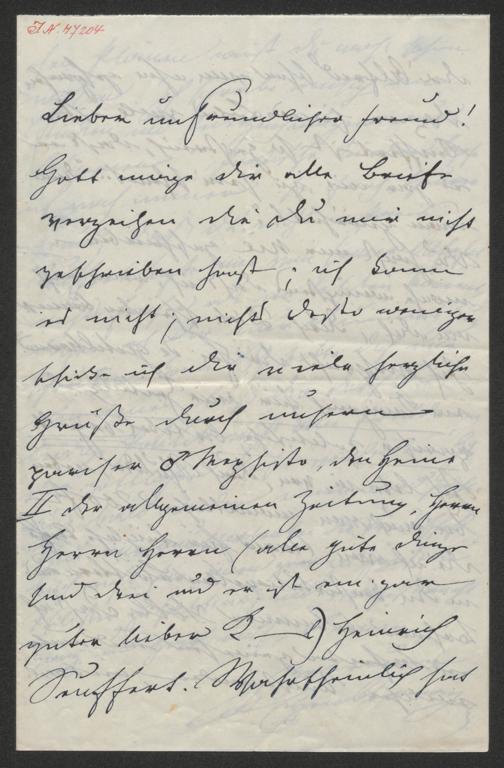 I.N. 47204
Lieber unfreundlicher Freund!
Gott möge dir alle Briefe
verzeihen die Du mir nicht
geschrieben hast; ich kann
es nicht; nichts desto weniger
schicke ich dir viele herzliche
Grüße durch unsern
pariser Mephisto, den Heine
II der allgemeinen Zeitung, Herrn
Herrn Herrn (aller gute Dinge
sind drei und er ist ein gar
guter lieber K——l) Heinrich
Seuffert. Wahrscheinlich hat